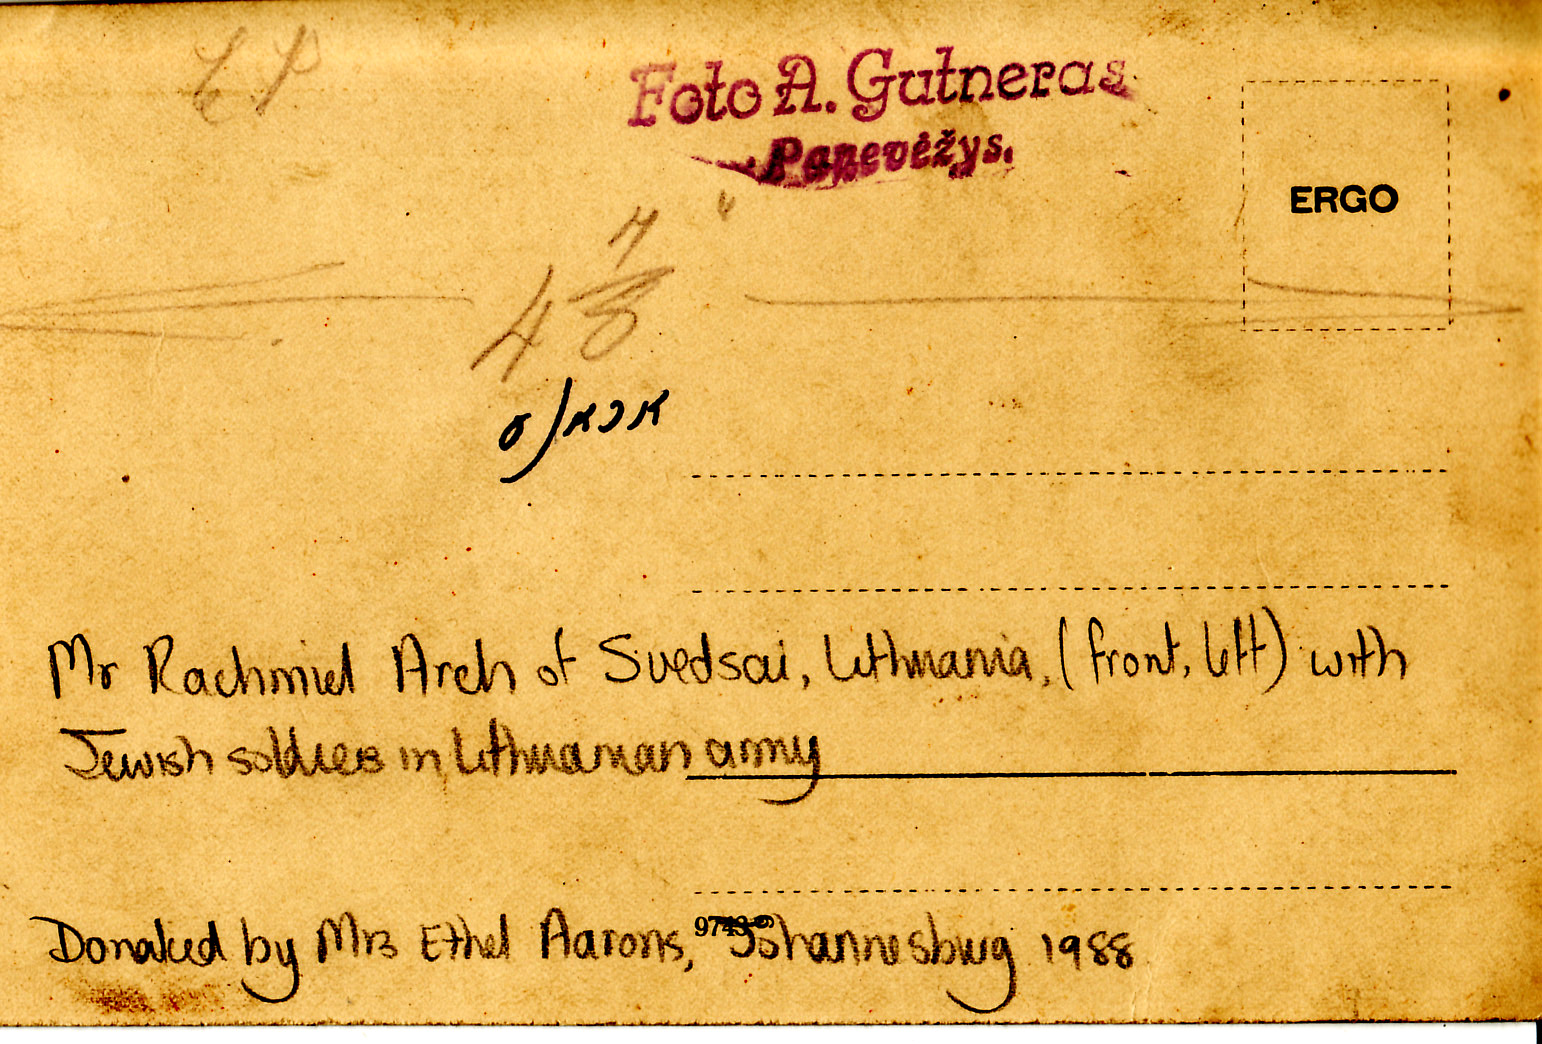 Foto A. Gutneras
Panevėžys.
ERGO
4 7/8
Mr Rachmiel Arch of Svedsai, Lithuania, (front, left) with
Jewish soldiers in Lithuanian army
Donated by Mrs Ethel Aarons, Johannesburg 1988